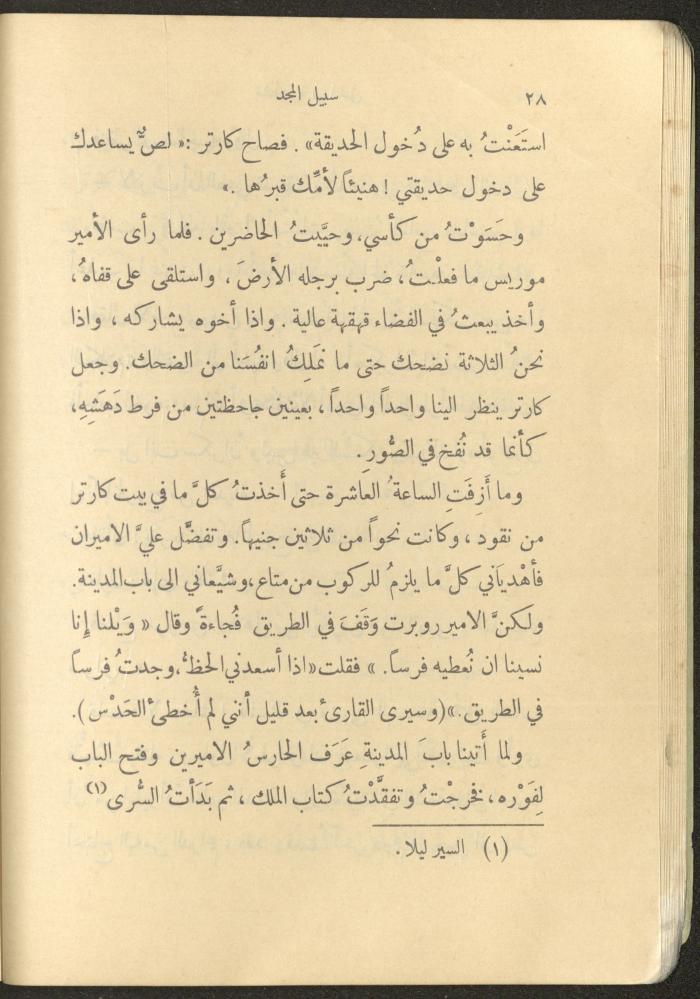 ٢٨ سبيل المجد
استَعَنْتُ به على دُخول الحديقة» . فصاح كارتر :« لصٌّ يساعدك
على دخول حديقتي ! هنيئاً لأمِّك قبرُها .»
وحَسَوْتُ من كأسي، وحيَّيتُ الحاضرين . فلما رأى الأمير
موريس ما فعلْتُ، ضرب برجله الأرضَ ، واستلقى على قفاهُ،
وأخذ يبعثُ في الفضاء قهقهة عالية . واذا أخوه يشاركه ، واذا
نحنُ الثلاثة نضحك حتى ما نَملِكُ انفُسَنا من الضحك. وجعل
كارتر ينظر الينا واحداً واحداً ، بعينين جاحظتين من فرط دَهَشِهِ،
كأنما قد نُفخ في الصُّورِ .
وما أَزِفَتِ الساعةُ العاشرة حتى أَخذتُ كلَّ ما في بيت كارتر
من نقود ، وكانت نحواً من ثلاثين جنيهاً. وتفضَّل عليَّ الاميران
فأهْديَاني كلَّ ما يلزمُ للركوب من متاع، وشيَّعاني الى باب المدينة.
ولكنَّ الامير روبرت وَقَفَ في الطريق فُجاءةً وقال « وَيْلنا إِنا
نسينا ان نُعطيه فرساً. » فقلت «اذا أسعدني الحظُّ، وجدتُ فرساً
في الطريق.» (وسيرى القارئُ بعد قليل أنني لم أُخطئ الحَدْس ).
ولما أَتينا بابَ المدينةِ عَرَف الحارسُ الاميرين وفتح الباب
لِفَوْره ، فخرجْتُ وتفقَّدْتُ كتاب الملك ، ثم بَدَأتُ السُّرى (١)
(١) السير ليلا .